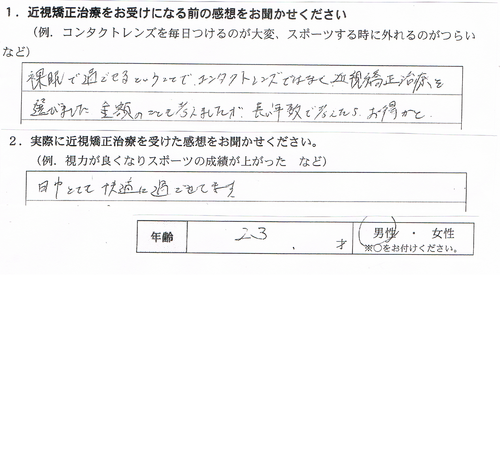 1．近視矯正治療をお受けになる前の感想をお聞かせください
（例．コンタクトレンズを毎日つけるのが大変、スポーツする時に外れるのがつらい
など）
裸眼で過ごせるということで、コンタクトレンズではなく近視矯正治療を
選びました 金額のことも考えましたが、長い年数で考えたら、お得かと.
2．実際に近視矯正治療を受けた感想をお聞かせください。
（例．視力が良くなりスポーツの成績が上がった など）
日中とても快適に過ごせてます
年齢 23 才 男性 ・ 女性
※○をお付けください。